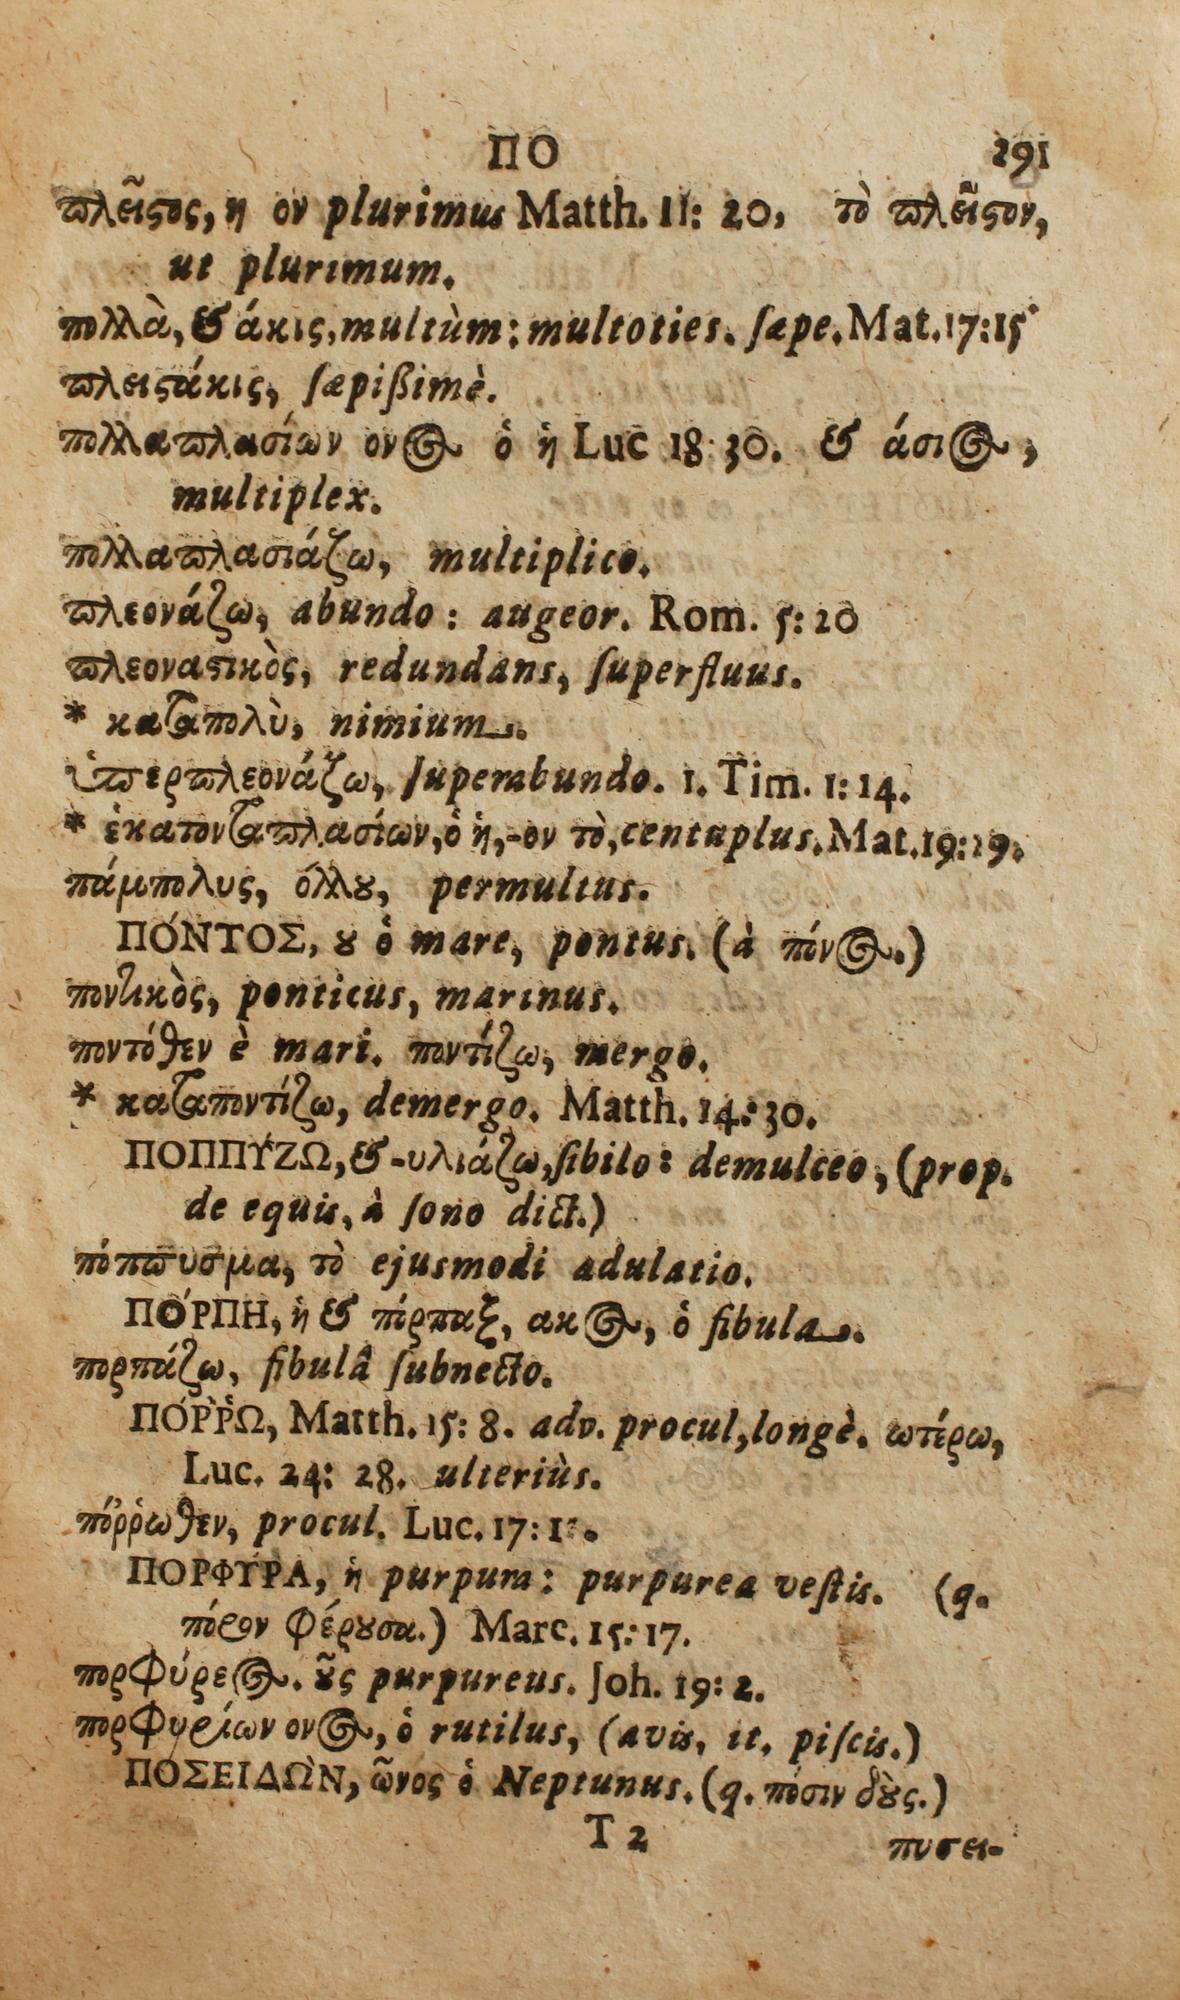 ΠΟ 291
πλεῖςος, η ον plurimus Matth. 11: 20, τὸ πλεῖςον,
ut plurimum.
πολλὰ, & άκις, multùm: multoties. ſæpe. Mat. 17:15
πλειςάκις, ſæpißimè.
πολλαπλασίων ονος ὁ ἡ Luc 18 30. & άσιος,
multiplex.
πολλαπλασιάζω, multiplico.
πλεονάζω, abundo: augeor. Rom. 5: 20
πλεοναςικὸς, redundans, ſuperfluus.
* καταπολὺ, nimium.
ὑπερπλεονάζω, ſuperabundo. 1. Tim. 1: 14.
* ἑκατονταπλασίων, ὁ ἡ, -ον τὸ, centuplus. Mat. 19:29.
πάμπολυς, όλλȣ, permultus.
ΠΌΝΤΟΣ, ȣ ὁ mare, pontus. (à πόνος.)
ποντικὸς, ponticus, marinus.
ποντόθεν è mari. ποντίζω, mergo.
* καταποντίζω, demergo. Matth. 14: 30.
ΠΟΠΠΎΖΩ, & -υλιάζω, ſibilo: demulceo, (prop.
de equis, à ſono dict.)
πόππυσμα, τὸ ejusmodi adulatio.
ΠΌΡΠΗ, ἡ & πόρπαξ, ακος, ὁ fibula.
πορπάζω, fibulâ ſubnecto.
ΠΌῤῬΩ, Matth. 15: 8. adv. procul, longè. ωτέρω,
Luc. 24: 28. ulteriùs.
πόῤῥωθεν, procul. Luc. 17:
ΠΟΡΦΎΡΑ, ἡ purpura: purpurea veſtis. (q.
πόρον φέρȣσα.) Marc. 15: 17.
πορφύρεος. ȣ͂ς purpureus. Joh. 19: 2.
πορφυρίων ονος, ὁ rutilus, (avis, it. piſcis.)
ΠΟΣΕΙΔΩ͂Ν, ῶνος ὁ Neptunus. (q. πόσιν δȣ̀ς.)
T 2 ποσει-